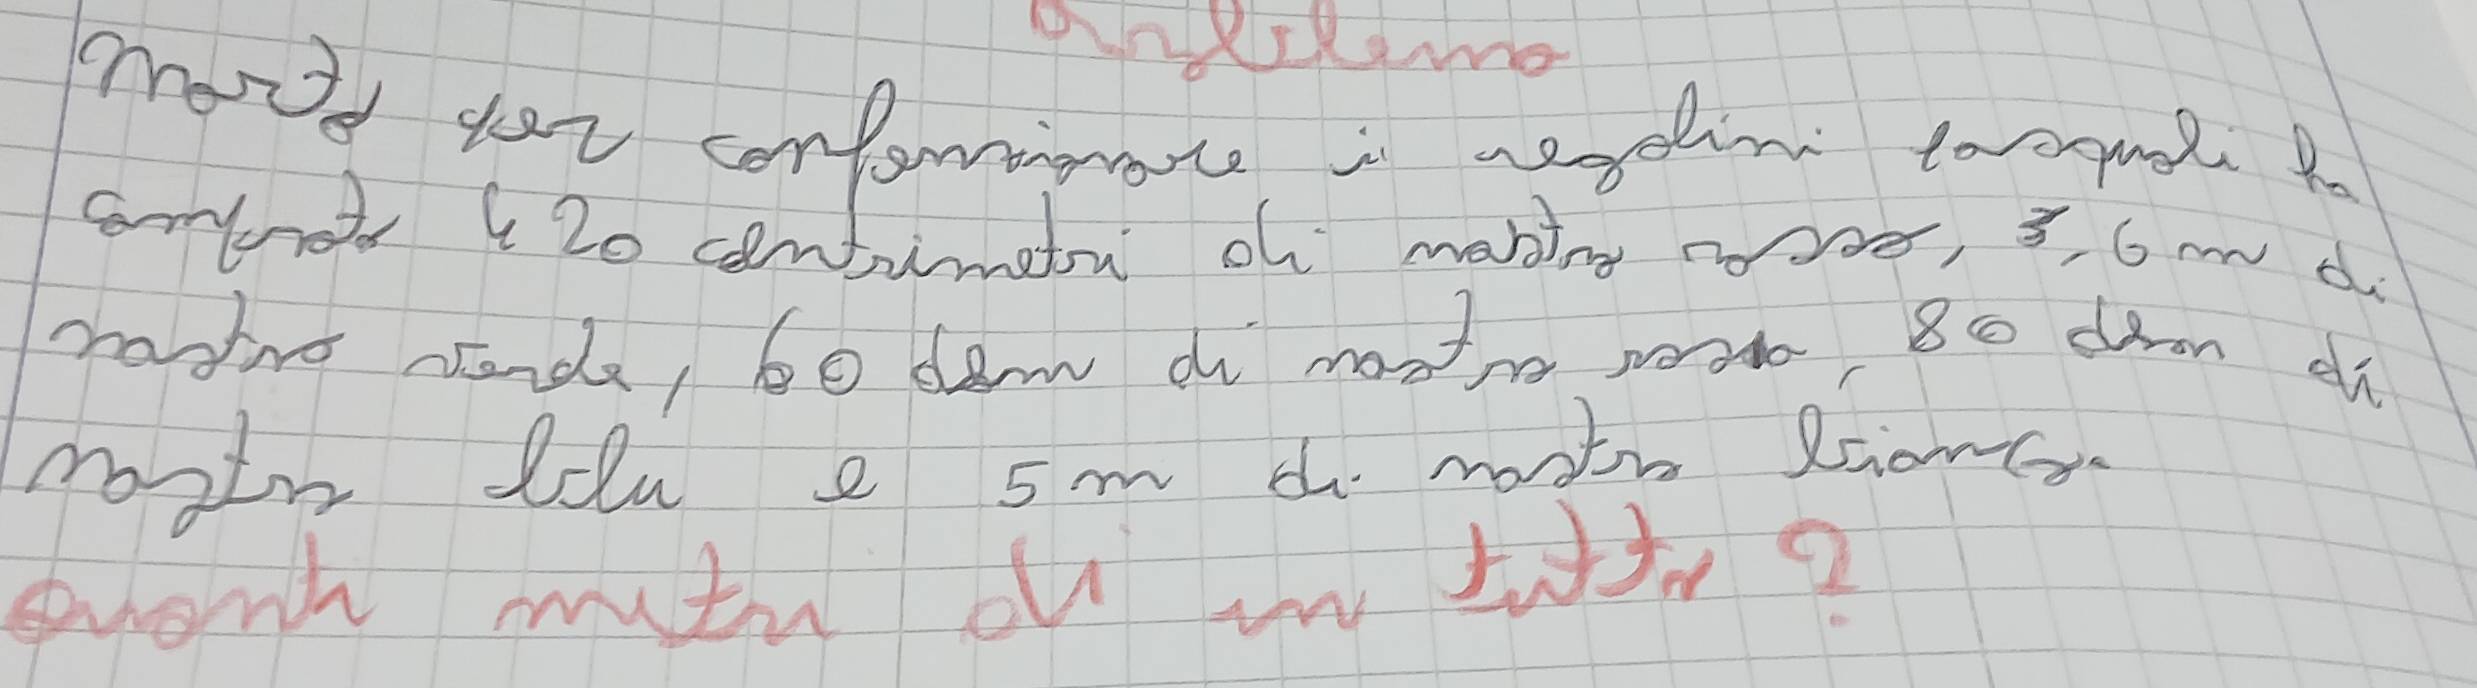 Problema
Marta per confezionare i regalini pasquali ha
comprato 420 centimetri di nastro rosso, 3,6 m di
nastro verde, 60 dam di nastro rosa, 80 dam di
nastro blu e 5 m di nastro bianco.
Quanti metri di in tutto?